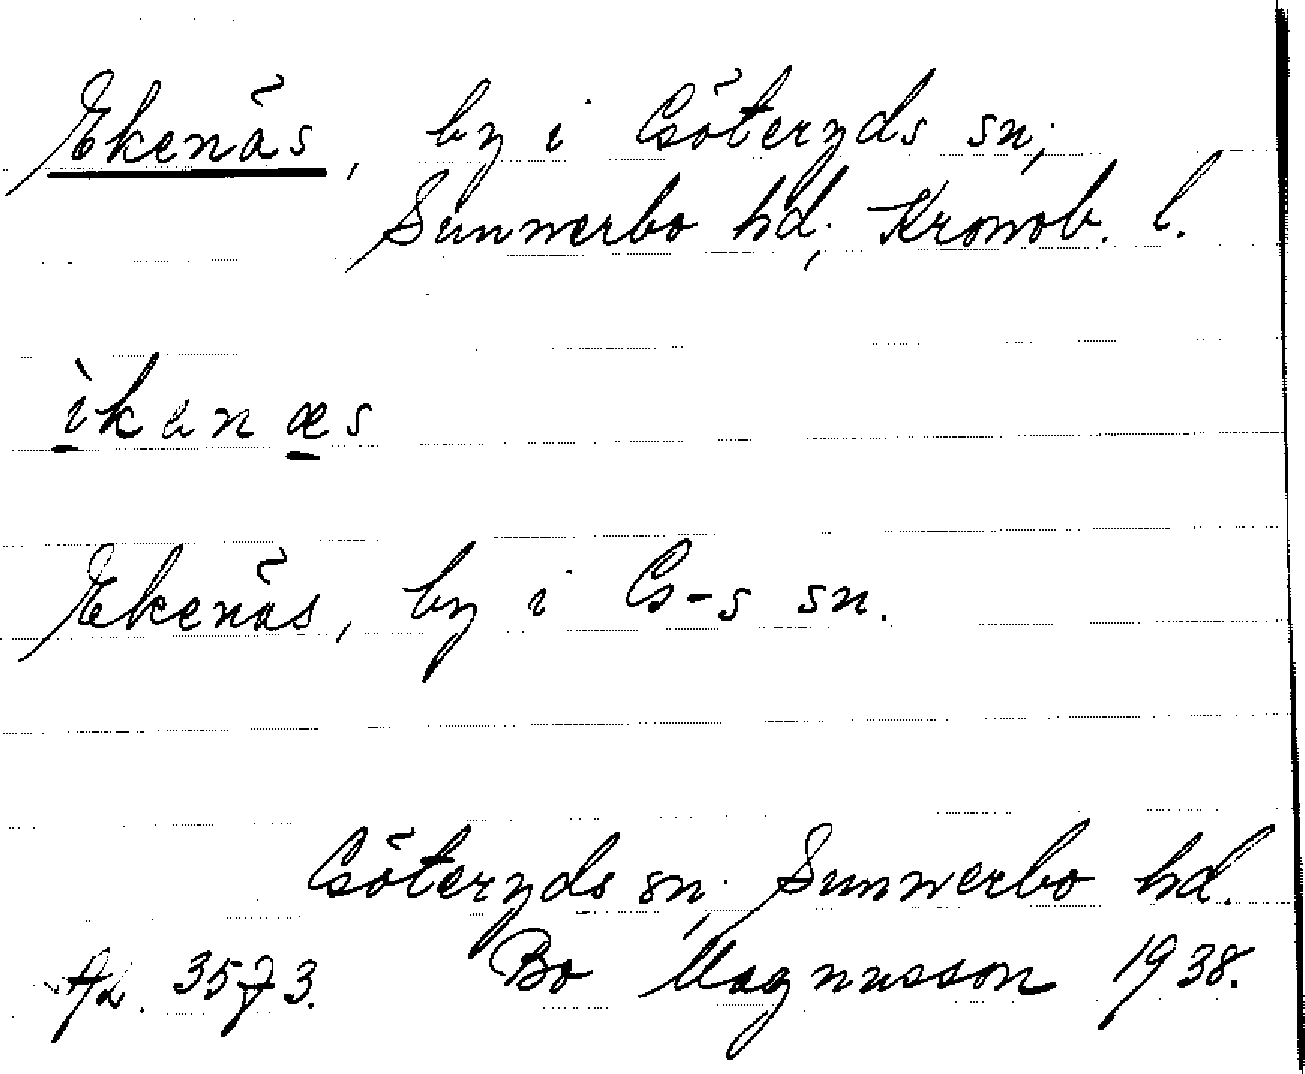 Ekenäs, by i Göteryds sn;
Sunnerbo hd; Kronob. l.
ìkenæs
Ekenäs, by i G-s sn.
Göteryds sn; Sunnerbo hd.
3573. Bo Magnusson 1938.